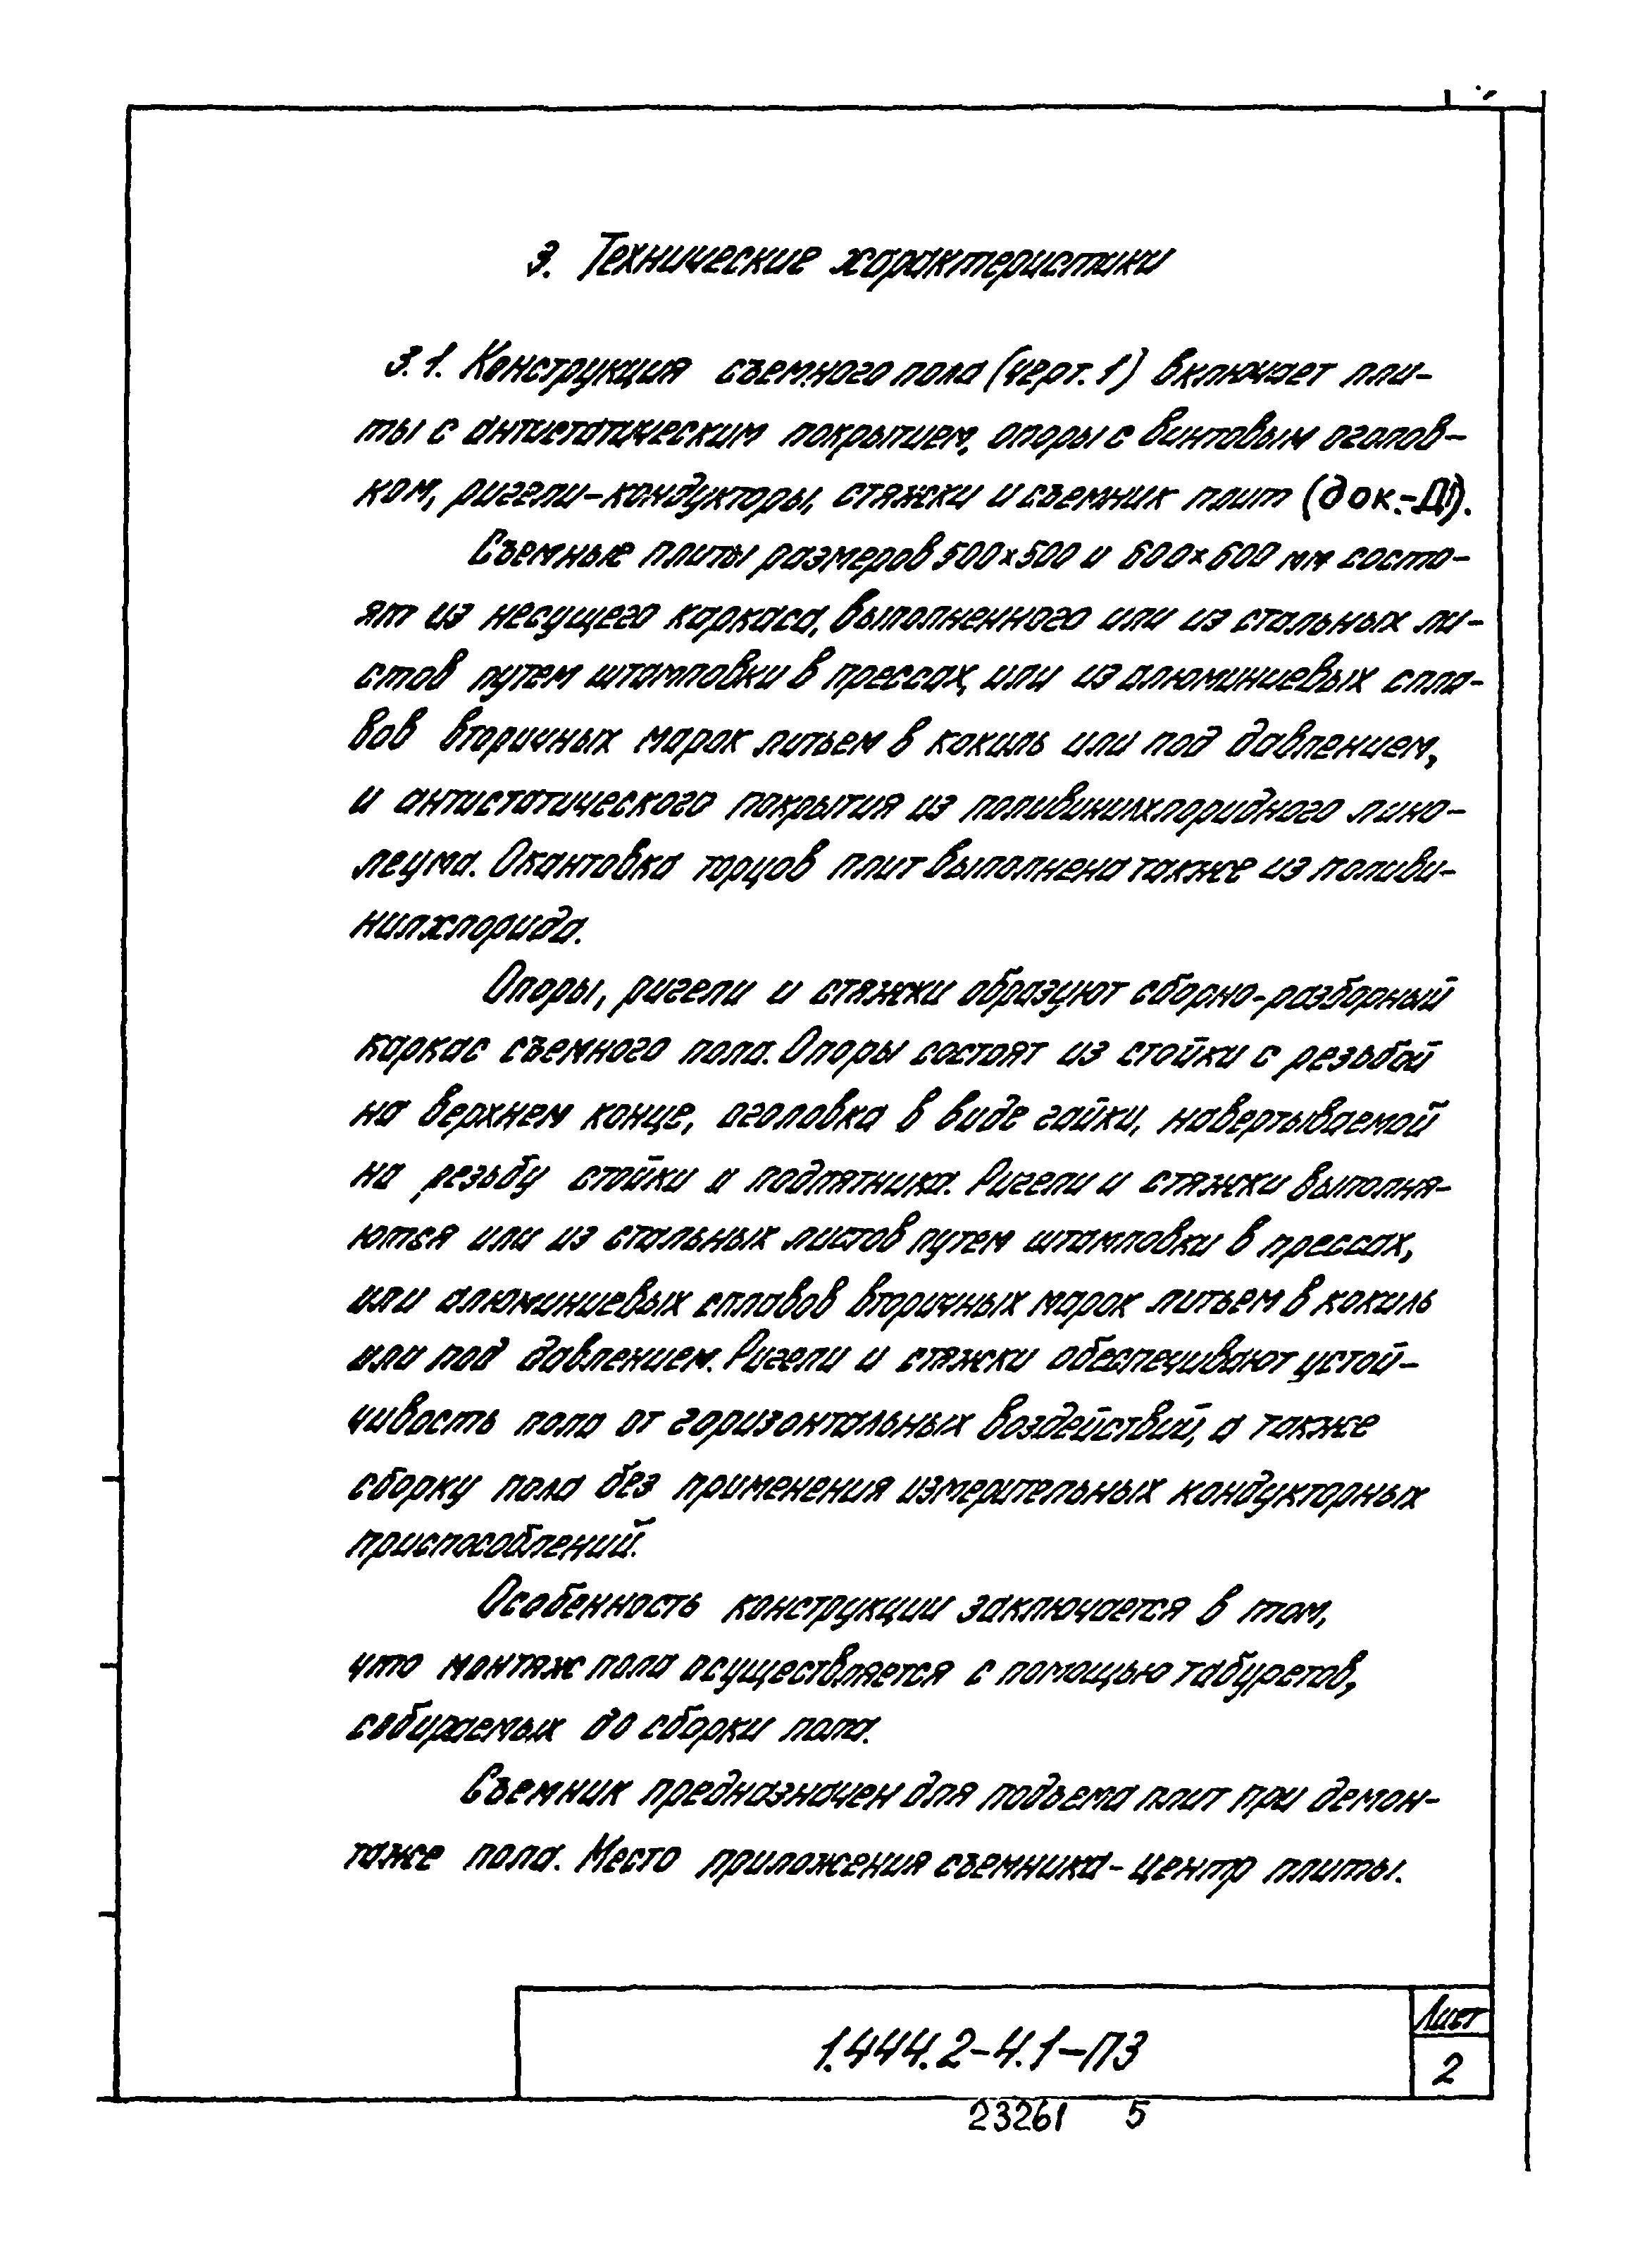 3. Технические характеристики
3.1. Конструкция съемного пола (черт. 1) включает пли-
ты с антистатическим покрытием, опоры с винтовым оголов-
ком, ригели-кондукторы, стяжки и съемник плит (док.-Д1).
Съемные плиты размеров 500×500 и 600×600 мм состо-
ят из несущего каркаса, выполненного или из стальных ли-
стов путем штамповки в прессах, или из алюминиевых спла-
вов вторичных марок литьем в кокиль или под давлением,
и антистатического покрытия из поливинилхлоридного лино-
леума. Окантовка торцов плит выполнена также из поливи-
нилхлорида.
Опоры, ригели и стяжки образуют сборно-разборный
каркас съемного пола. Опоры состоят из стойки с резьбой
на верхнем конце, оголовка в виде гайки, навертываемой
на резьбу стойки и подпятника. Ригели и стяжки выполня-
ются или из стальных листов путем штамповки в прессах,
или алюминиевых сплавов вторичных марок литьем в кокиль
или под давлением. Ригели и стяжки обеспечивают устой-
чивость пола от горизонтальных воздействий, а также
сборку пола без применения измерительных кондукторных
приспособлений.
Особенность конструкции заключается в том,
что монтаж пола осуществляется с помощью табуретов,
собираемых до сборки пола.
Съемник предназначен для подъема плит при демон-
таже пола. Место приложения съемника - центр плиты.
1.444.2-4.1-ПЗ
Лист
2
23261 5